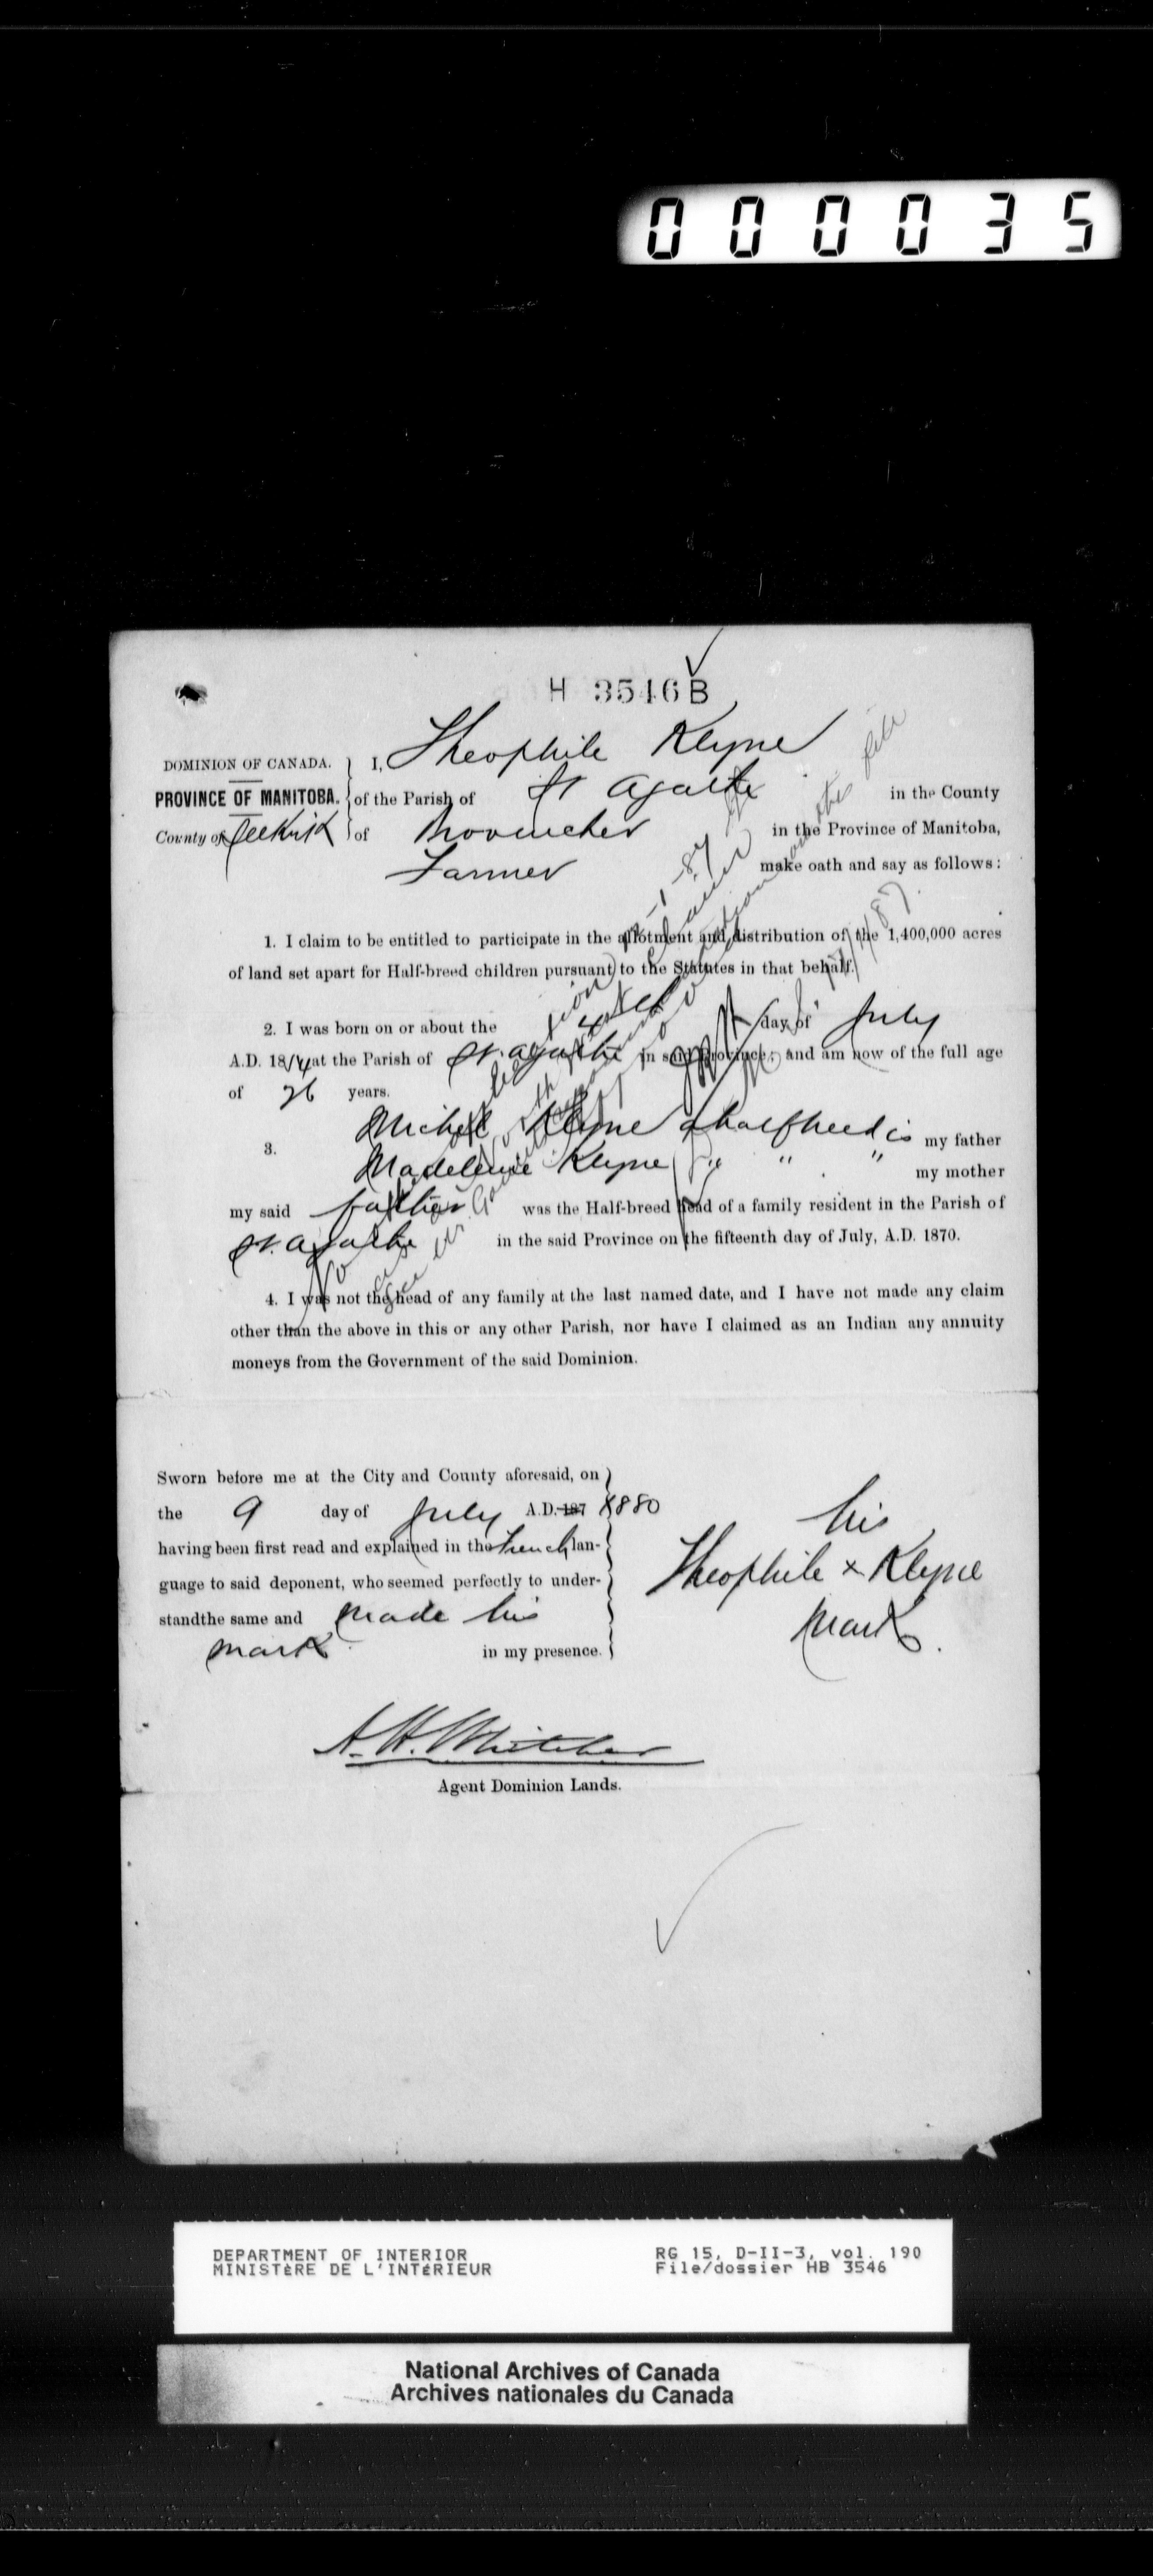 000035
H 3546 B
I, Theophile Klyne
DOMINION OF CANADA.
PROVINCE OF MANITOBA.
County of Selkirk
of the Parish of St Agathe in the County
of Provencher in the Province of Manitoba,
Farmer make oath and say as follows:
1. I claim to be entitled to participate in the allotment and distribution of the 1,400,000 acres
of land set apart for Half-breed children pursuant to the Statutes in that behalf.
2. I was born on or about the day of July
A.D. 1854 at the Parish of St. Agathe in said Province; and am now of the full age
of 26 years.
3. Michel Klyne a halfbreed is my father
Madeleine Klyne " " " my mother
my said father was the Half-breed head of a family resident in the Parish of
St. Agathe in the said Province on the fifteenth day of July, A.D. 1870.
4. I was not the head of any family at the last named date, and I have not made any claim
other than the above in this or any other Parish, nor have I claimed as an Indian any annuity
moneys from the Government of the said Dominion.
Sworn before me at the City and County aforesaid, on
the 9 day of July A.D. 187 1880
having been first read and explained in the French lan-
guage to said deponent, who seemed perfectly to under-
standthe same and made his
mark in my presence.
his
Theophile x Klyne
mark.
A. H. Whitcher
Agent Dominion Lands.
DEPARTMENT OF INTERIOR
MINISTÈRE DE L'INTÉRIEUR
RG 15, D-II-3, vol. 190
File/dossier HB 3546
National Archives of Canada
Archives nationales du Canada